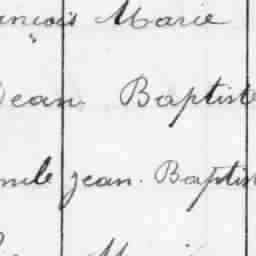 ançois Marie
Jean Baptiste
mile jean. Baptis